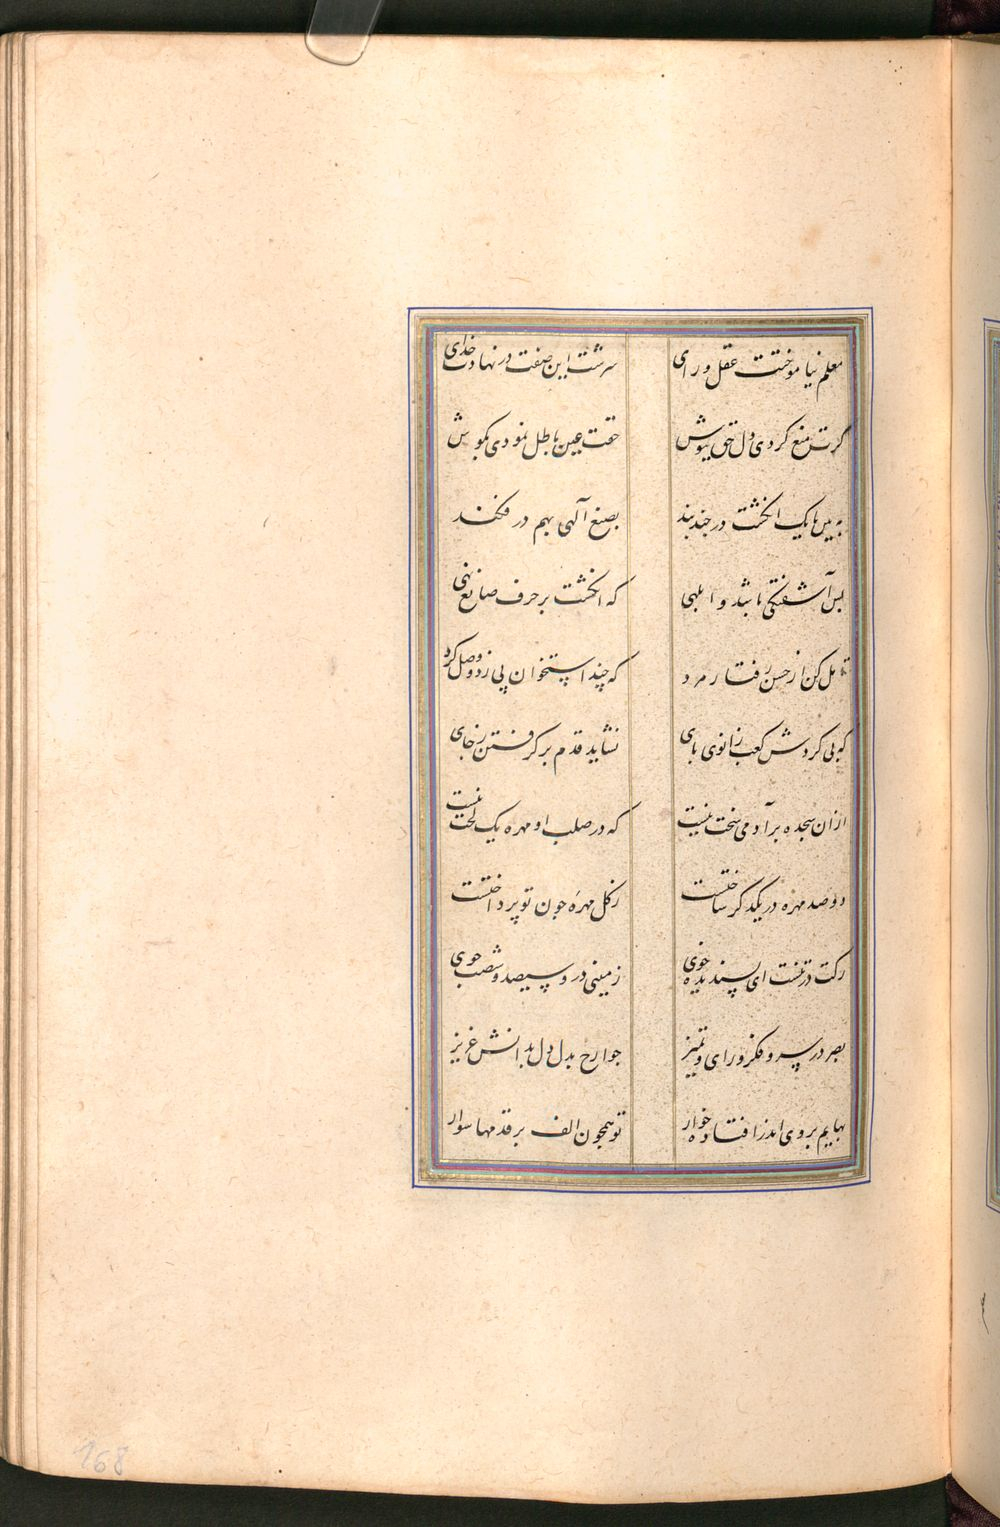 معلم نیاموختت عقل و رای سرشت این صفت در نهادت خدای
گرت منع کردی دل حق نیوش حقت عین باطل نمودی بگوش
ببین تا یک انکشت در چند بند بصنع آلهی بهم در فکند
بس آشفتکی باشد و ابلهی که انکشت بر حرف صانع نهی
تامل کن از حسن رفتار مرد که چند استخوان پی زد و وصل کرد
که بی کردش کعب زانوی پای نشاید قدم بر کرفتن ز جای
ازان سجده بر آدمی سخت نیست که در صلب او مهره یک لخت نیست
دو صد مهره در یکدکر ساختست ز کل مهرهٔ چون تو پرداختست
رکت در تنست ای پسندیده خوی زمینی درو سیصد و شصت جوی
بصر در سر و فکر و رای و تمیز جوارح بدل دل بدانش عزیز
بهایم بروی اندر افتاده خوار تو همچون الف بر قدمها سوار
168